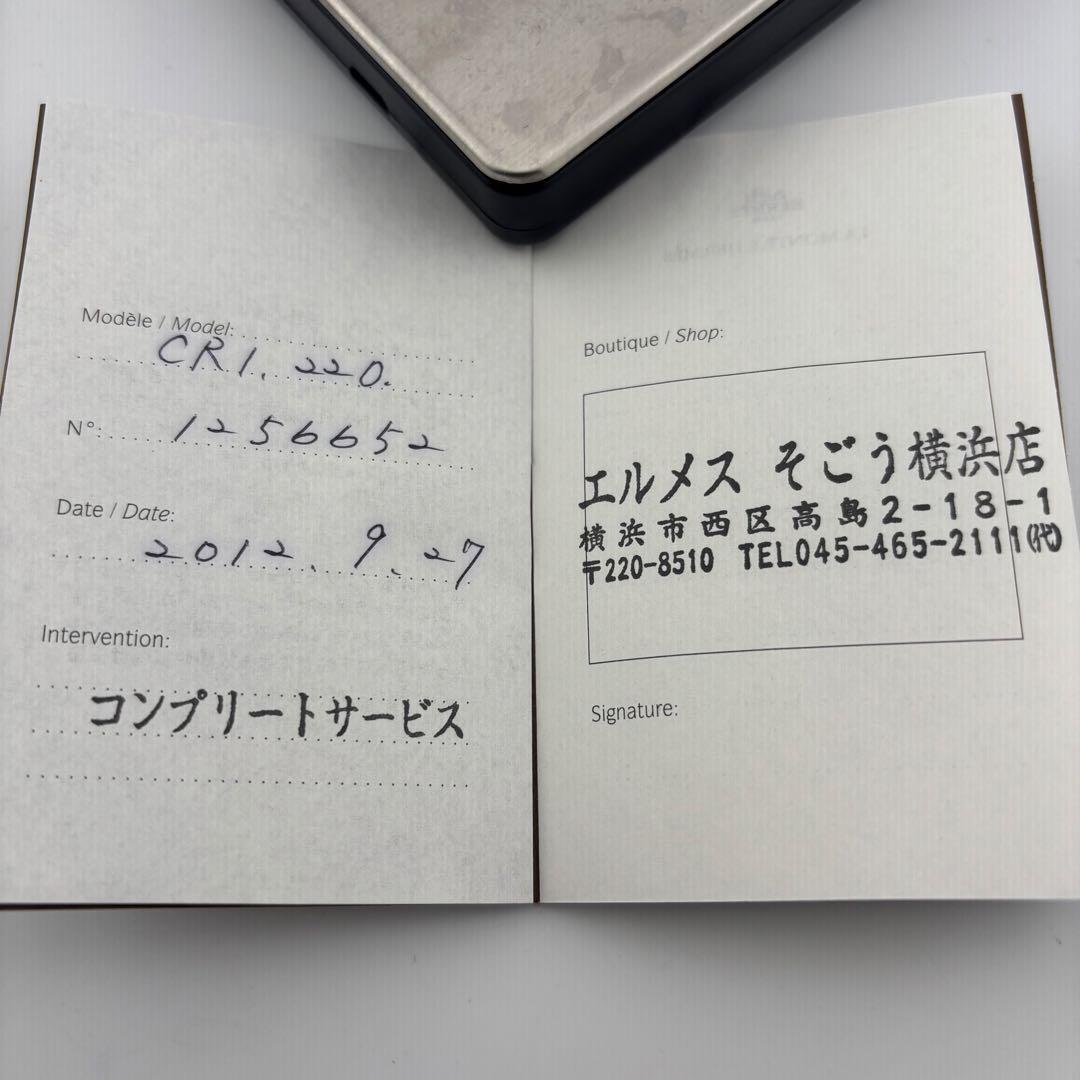 Modèle / Model:
CR1. 220.
N°:
1256652
Date / Date:
2012. 9. 27
Intervention:
コンプリートサービス
Boutique / Shop:
エルメス そごう横浜店
横浜市西区高島2-18-1
〒220-8510 TEL045-465-2111㈹
Signature: